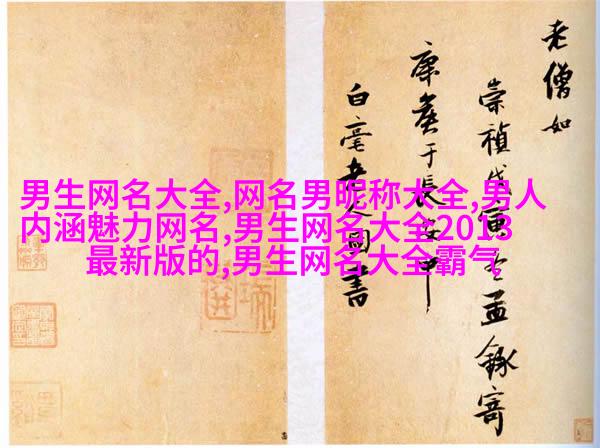 男生网名大全,网名男昵称大全,男人
内涵魅力网名,男生网名大全2013
最新版的,男生网名大全霸气
老僧如
崇禎戊寅冬孟錄寄
于長安中
白毫老人圖書